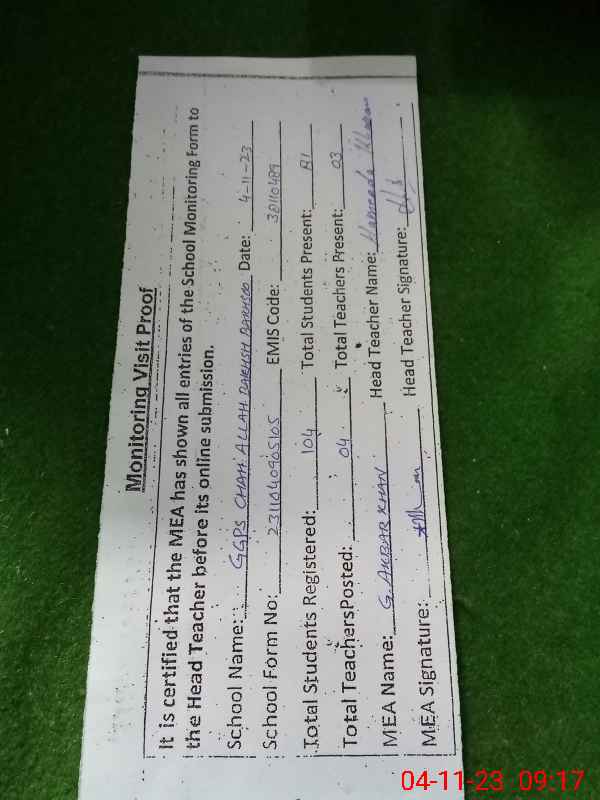 Monitoring Visit Proof
It is certified that the MEA has shown all entries of the School Monitoring Form to
the Head Teacher before its online submission.
School Name: GGPS CHAH ALLAH BAKHSH Date: 4-11-23
School Form No: 2311040905105 EMIS Code: 32110489
Total Students Registered: 104 Total Students Present: 81
Total TeachersPosted: 04 Total Teachers Present: 03
MEA Name: G. AKBAR KHAN Head Teacher Name:
MEA Signature: Head Teacher Signature:
04-11-23 09:17